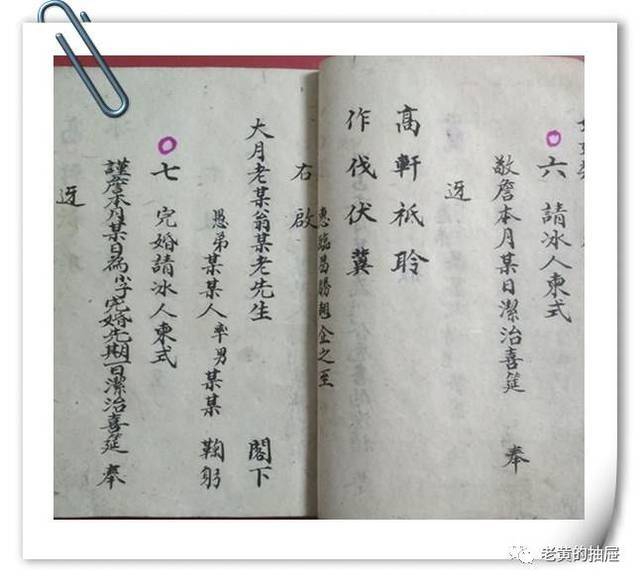 六 請冰人柬式
敬詹本月某日潔治喜筵 奉
迓
高軒祇聆
作伐伏冀
惠臨曷勝翹企之至
右啟
大月老某翁某老先生 閣下
愚弟某某人率男某某 鞠躬
七 完婚請冰人柬式
謹詹本月某日為小子完婚先期一日潔治喜筵 奉
迓
老黄的抽屉